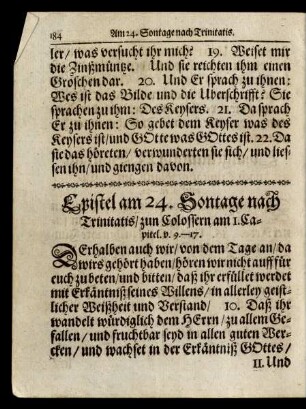 184 Am 24. Sontage nach Trinitatis.
ler/ was versucht ihr mich? 19. Weiset mir
die Zinßmüntze. Und sie reichten ihm einen
Groschen dar. 20. Und Er sprach zu ihnen:
Wes ist das Bilde und die Uberschrifft? Sie
sprachen zu ihm: Des Keysers. 21. Da sprach
Er zu ihnen: So gebet dem Keyser was des
Keysers ist/ und GOtte was GOttes ist. 22. Da
sie das höreten/ verwunderten sie sich/ und lies-
sen ihn/ und giengen davon.
Epistel am 24. Sontage nach
Trinitatis/ zum Colossern am 1. Ca-
pitel. v. 9.—17.
DErhalben auch wir/ von dem Tage an/ da
wirs gehört haben/ hören wir nicht auff für
euch zu beten/ und bitten/ daß ihr erfüllet werdet
mit Erkäntniß seines Willens/ in allerley geist-
licher Weißheit und Verstand/ 10. Daß ihr
wandelt würdiglich dem HErrn/ zu allem Ge-
fallen/ und fruchtbar seyd in allen guten Wer-
cken/ und wachset in der Erkäntniß GOttes/
11. Und